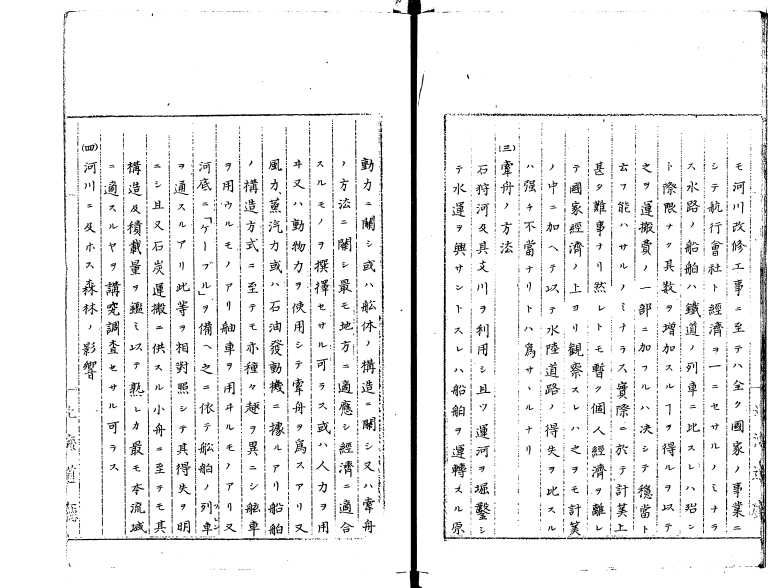 モ河川改修工事ニ至テハ全ク國家ノ事業ニ
シテ航行會社ト經濟ヲ一ニセサルノミナラ
ス水路ノ船舶ハ鐵道ノ列車ニ比スレハ殆ン
ト際限ナク其数ヲ増加スルヿヲ得ルヲ以テ
之ヲ運搬費ノ一部ニ加フルハ决シテ穏當ト
云フ能ハサルノミナラス實際ニ於テ計算上
甚タ難事ナリ然レトモ暫ク個人經濟ヲ離レ
テ國家經濟ノ上ヨリ觀察スレハ之ヲモ計算
ノ中ニ加ヘテ以テ水陸道路ノ得失ヲ比スル
ハ强チ不當ナリトハ爲サヽルナリ
(三)牽舟ノ方法
石狩河及其支川ヲ利用シ且ツ運河ヲ堀鑿シ
テ水運ヲ興サントスレハ船舶ヲ運轉スル原
動力ニ關シ或ハ舩体ノ構造ニ關シ又ハ牽舟
ノ方法ニ關シ最モ地方ニ適應シ經濟ニ適合
スルモノヲ撰擇セサル可ラス或ハ人力ヲ用
ヰ又ハ動物力ヲ使用シテ牽舟ヲ爲スアリ又
風力、蒸汽力或ハ石油發動機ニ據ルアリ船舶
ノ構造方式ニ至テモ亦種々趣ヲ異ニシ舩車
ヲ用ウルモノアリ舳車ヲ用ヰルモノアリ又
河底ニ「ケーブル」ヲ備ヘ之ニ依テ舩舶ノ列車
ヲ通スルアリ此等ヲ相對照シテ其得失ヲ明
ニシ且又石炭運搬ニ供スル小舟ニ至ラモ其
構造及積載量ヲ鑑ミ以テ熟レカ最モ本流域
ニ適スルヤヲ講究調査セサル可ラス
(四)河川ニ及ホス森林ノ影響
北海道廳